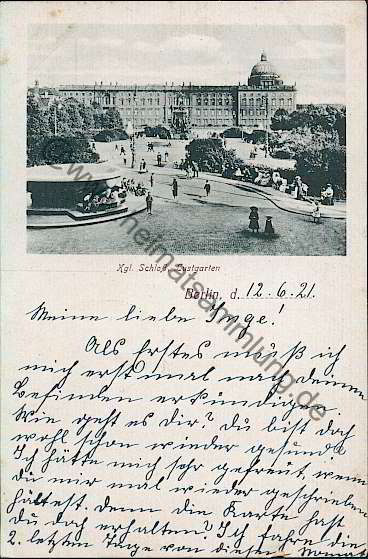 Kgl. Schloß-Lustgarten
Berlin, d. 12.6.21.
Meine liebe Inge!
Als Erstes muß ich
mich erst mal nach deinem
Befinden erkundigen.
Wie geht es dir? Du bist doch
wohl schon wieder gesund?
Ich hätte mich sehr gefreut, wenn
du mir mal wieder geschrieben
hättest. denn die Karte hast
du doch erhalten? Ich fahre die
2. letzten Tage von diesem Monat
www.heimatsammlung.de